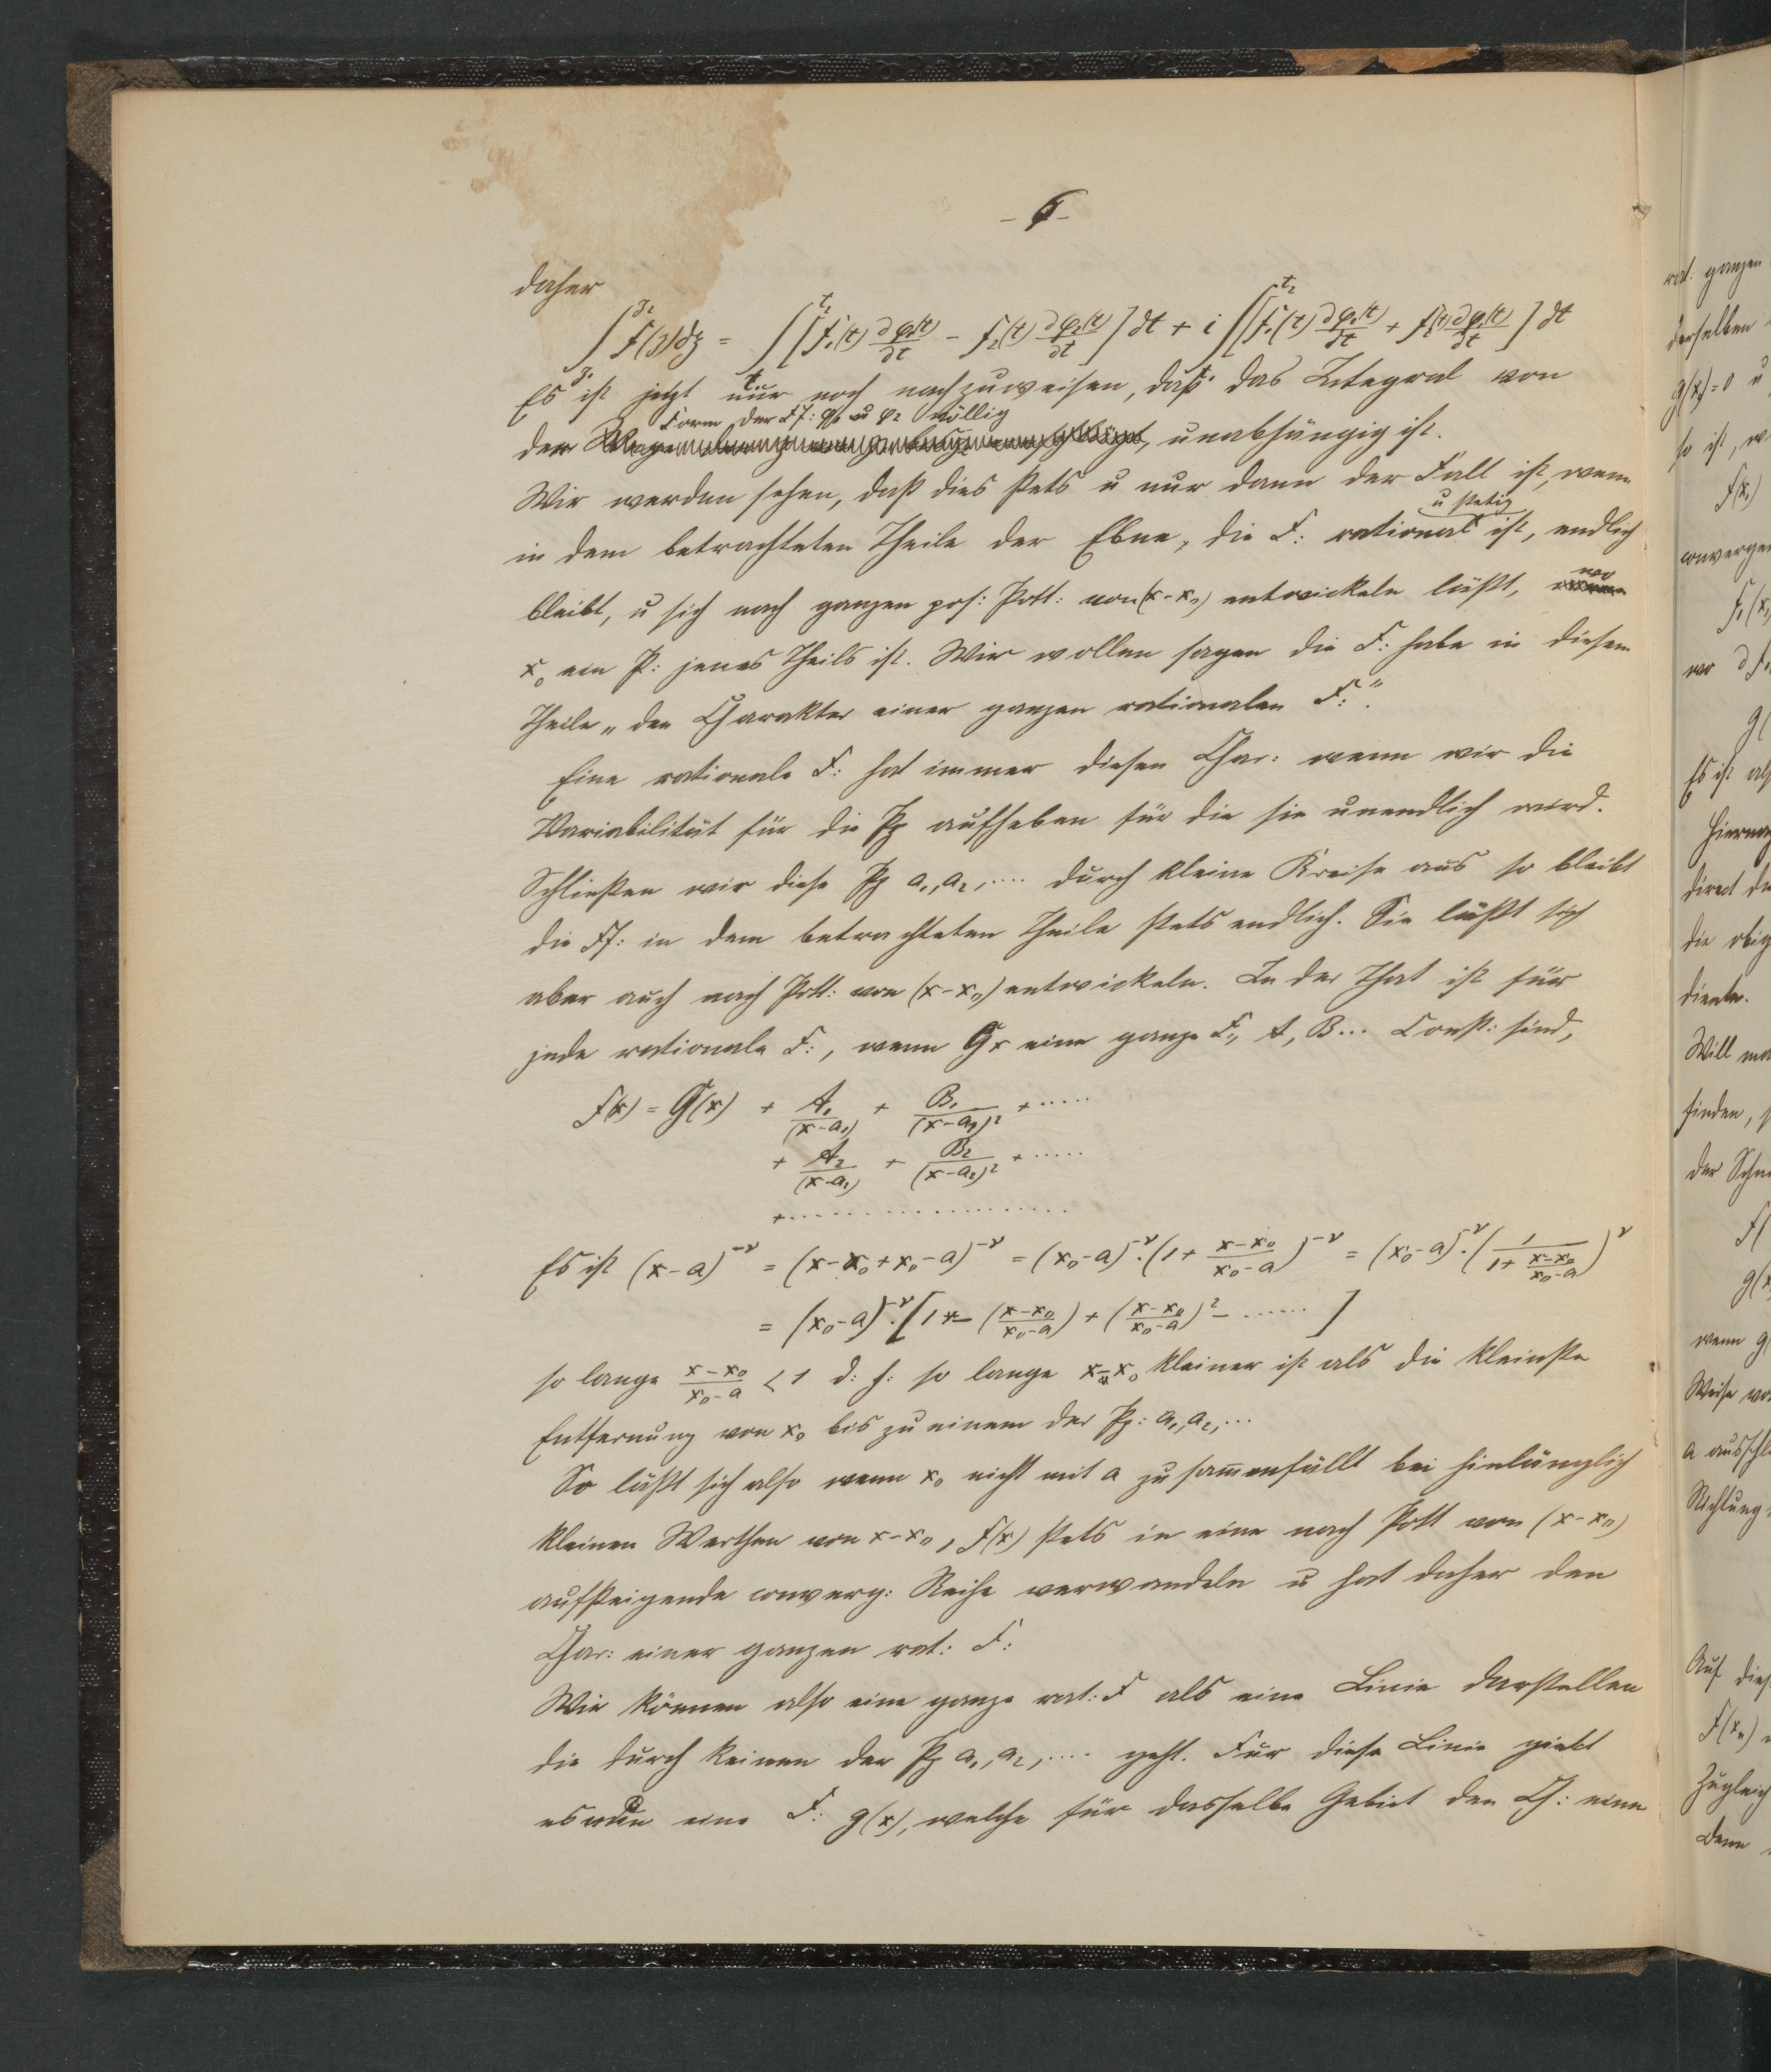 - 6 -
daher
∫_{z_0}^{z_1} f(z)dz = ∫_{t_1}^{t_2} [f_1(t) ∂φ_1(t)/∂t - f_2(t) ∂φ_2(t)/∂t] dt + i ∫_{t_1}^{t_2} [f_1(t) ∂φ_2(t)/∂t + f_2(t) ∂φ_1(t)/∂t] dt
Es ist jetzt nur noch nachzuweisen, daß das Integral von
Form der Ff: φ_1 u φ_2 völlig
der unabhängig ist.
Wir werden sehen, daß dies stets u nur dann der Fall ist, wenn
u stetig
in dem betrachteten Theile der Ebne, die F: rational ist, endlich
bleibt, u sich nach ganzen pos: Pott: von (x-x_0) entwickeln läßt, wo
x_0 ein P: jenes Theils ist. Wir wollen sagen die F: habe in diesem
Theile „den Charakter einer ganzen rationalen F:“.
Eine rationale F: hat immer diesen Char: wenn wir die
Variabilität für die Pp aufheben für die sie unendlich wird.
Schließen wir diese Pp a_1, a_2, .... durch kleine Kreise aus so bleibt
die Ff: in dem betrachteten Theile stets endlich. Sie läßt sich
aber auch nach Pott: von (x-x_0) entwickeln. In der That ist für
jede rationale F:, wenn Gx eine ganze F:, A, B... Const: sind,
f(x) = G(x) + A_1/(x-a_1) + B_1/(x-a_1)^2 + .....
+ A_2/(x-a_2) + B_2/(x-a_2)^2 + .....
+ ....................
Es ist (x-a)^{-ν} = (x-x_0+x_0-a)^{-ν} = (x_0-a)^{-ν}·(1+ (x-x_0)/(x_0-a))^{-ν} = (x_0-a)^{-ν}·(1/(1+ (x-x_0)/(x_0-a)))^ν
= (x_0-a)^{-ν}·[1 - ((x-x_0)/(x_0-a)) + ((x-x_0)/(x_0-a))^2 - ...... ]
so lange (x-x_0)/(x_0-a) < 1 d: h: so lange x-x_0 kleiner ist als die kleinste
Entfernung von x_0 bis zu einem der Pp: a_1, a_2, ...
So läßt sich also wenn x_0 nicht mit a zusam̅enfällt bei hinlänglich
kleinen Werthen von x-x_0, f(x) stets in eine nach Pott von (x-x_0)
aufsteigende converg: Reihe verwandeln u hat daher den
Char: einer ganzen rat: F:
Wir können also eine ganze rat: F als eine Linie darstellen
die durch keinen der Pp a_1, a_2, .... geht. Für diese Linie giebt
es nun eine F: g(x), welche für dasselbe Gebiet den Ch: einer
rat: ganzen
derselben
g(x)=0 u
so ist, w
f(x)
convergen
wo
Es ist als
Hierna
direct
die obig
diente.
Will ma
finden, s
der Schn
wenn g(
Weise vo
a ausschl
Richtung
Auf dies
f(x_0)
Zugleich
Denn